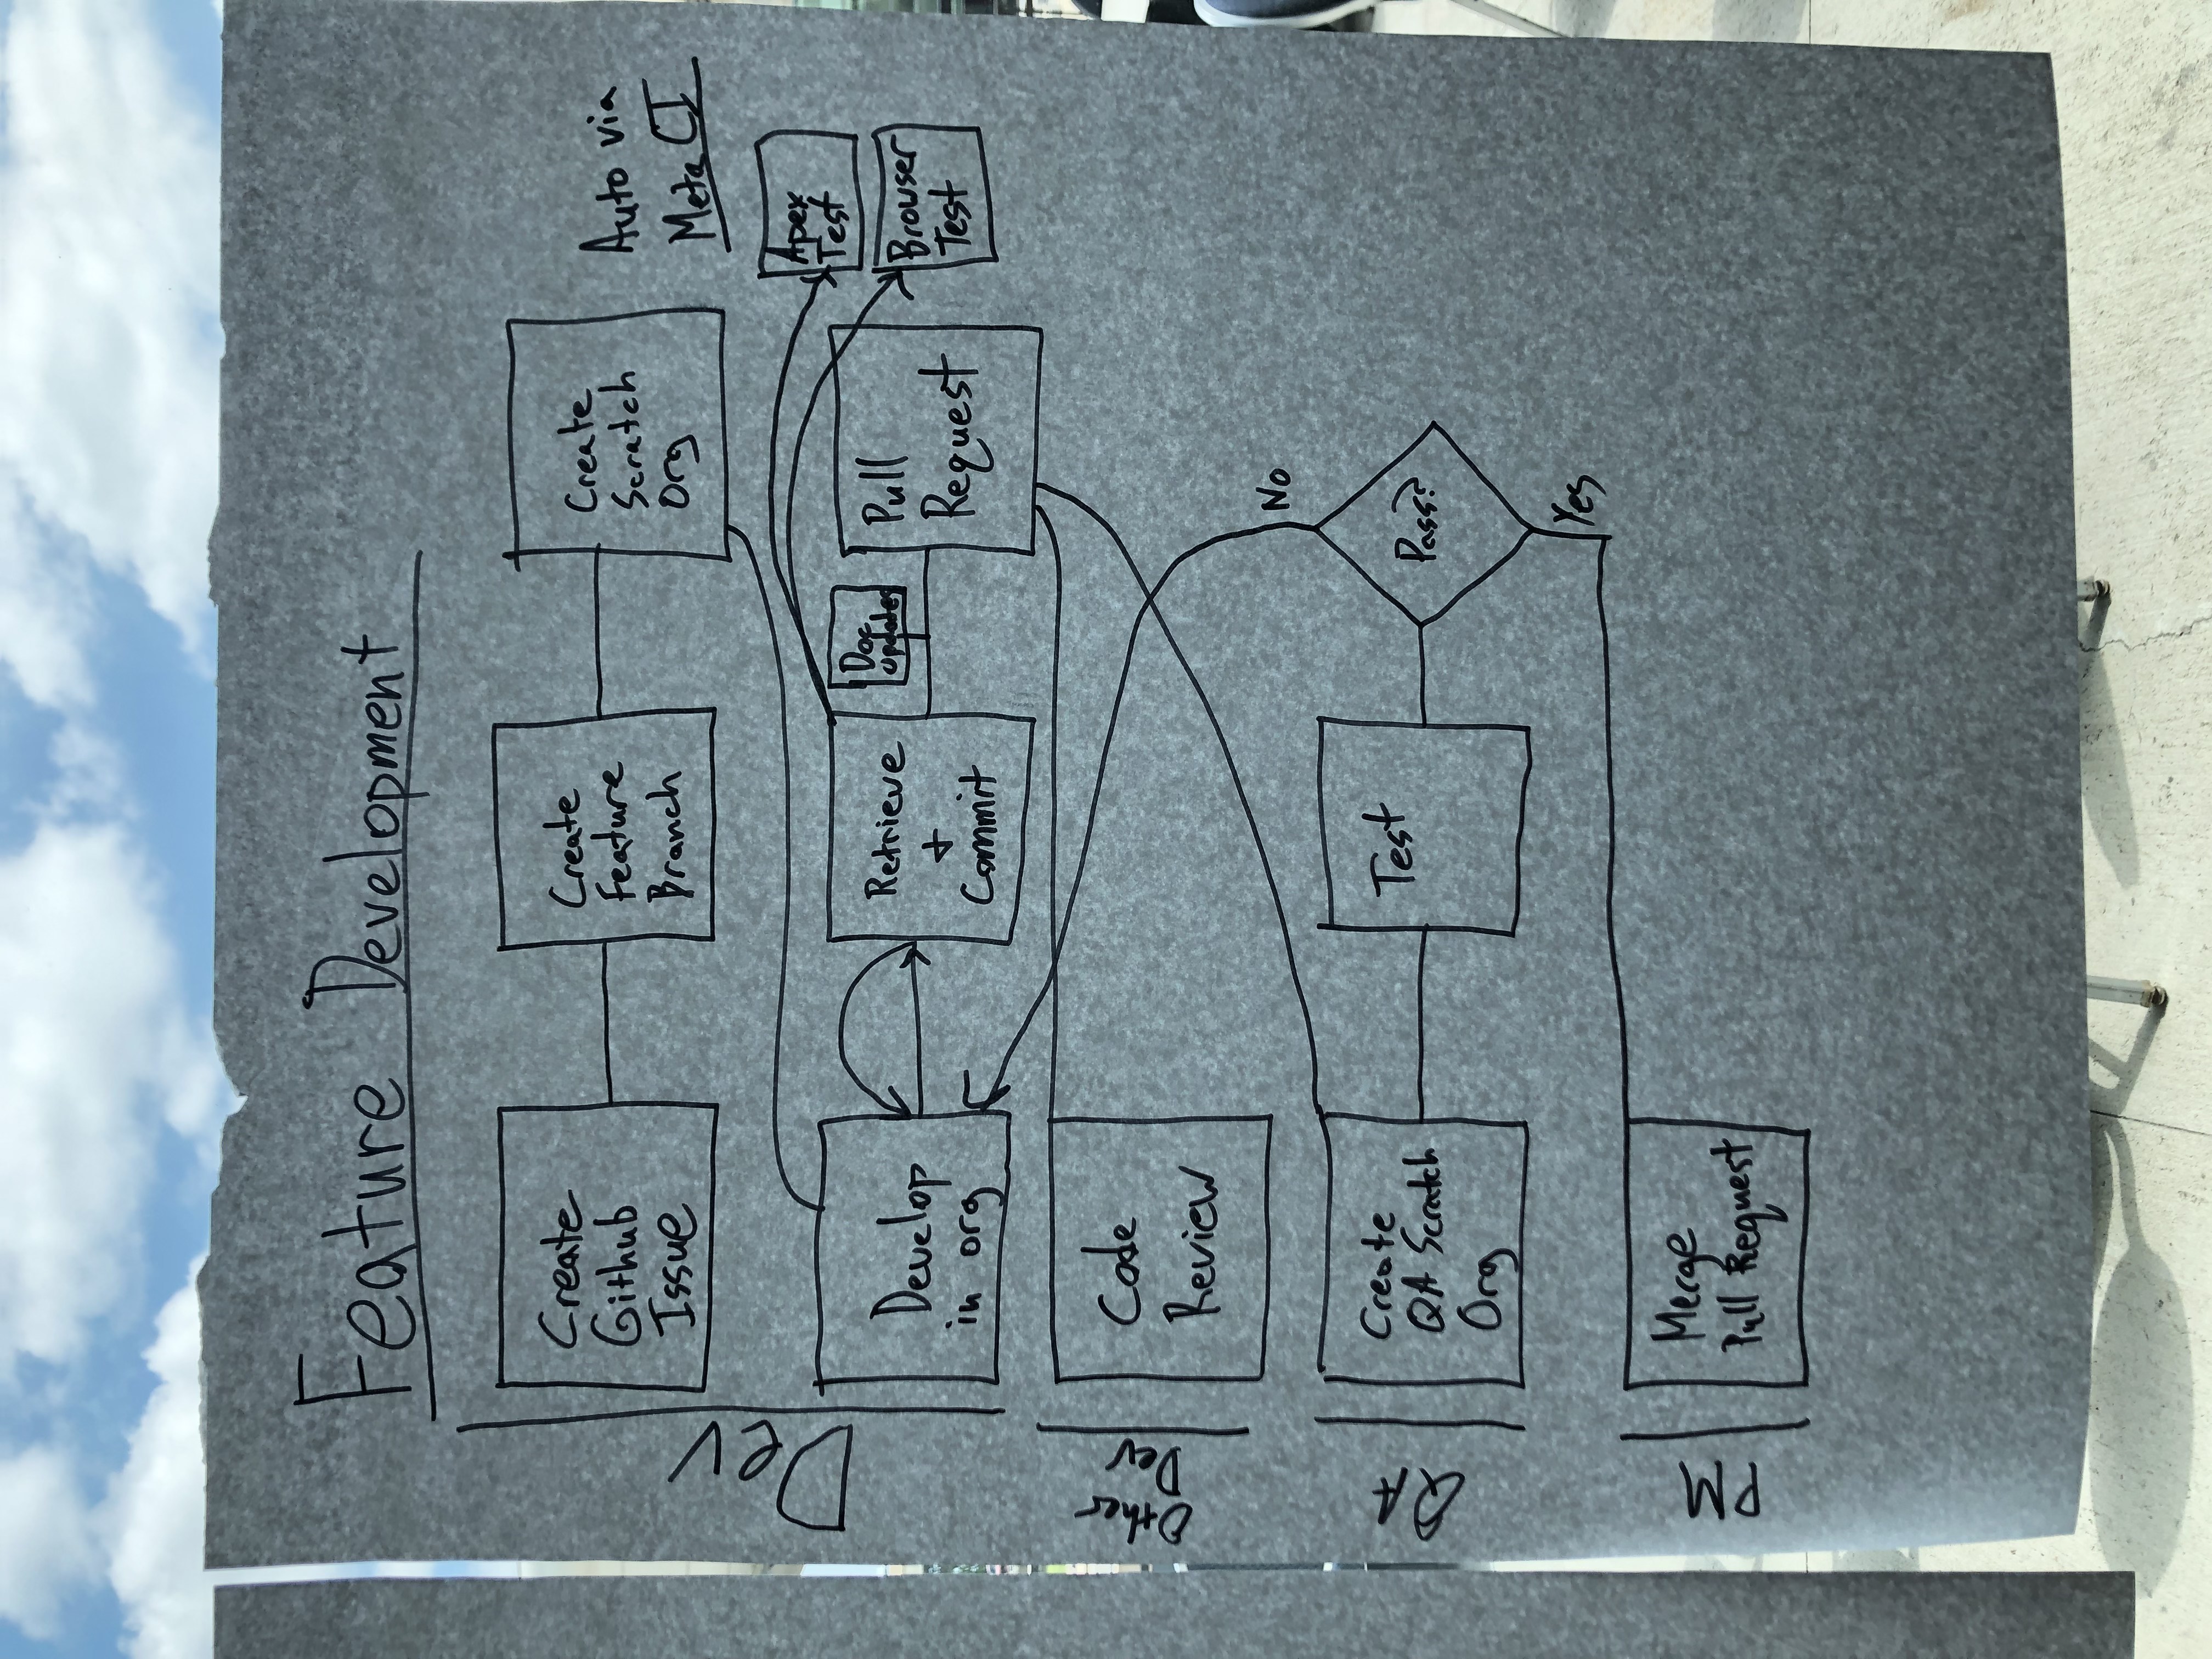 Feature Development
Dev
Create
Github
Issue
Create
Feature
Branch
Create
Scratch
Org
Auto via
MetaCI
Develop
in org
Retrieve
+
Commit
Doc
updates
Pull
Request
Apex
Test
Browser
Test
Other
Dev
Code
Review
QA
Create
QA Scratch
Org
Test
Pass?
No
Yes
PM
Merge
Pull Request